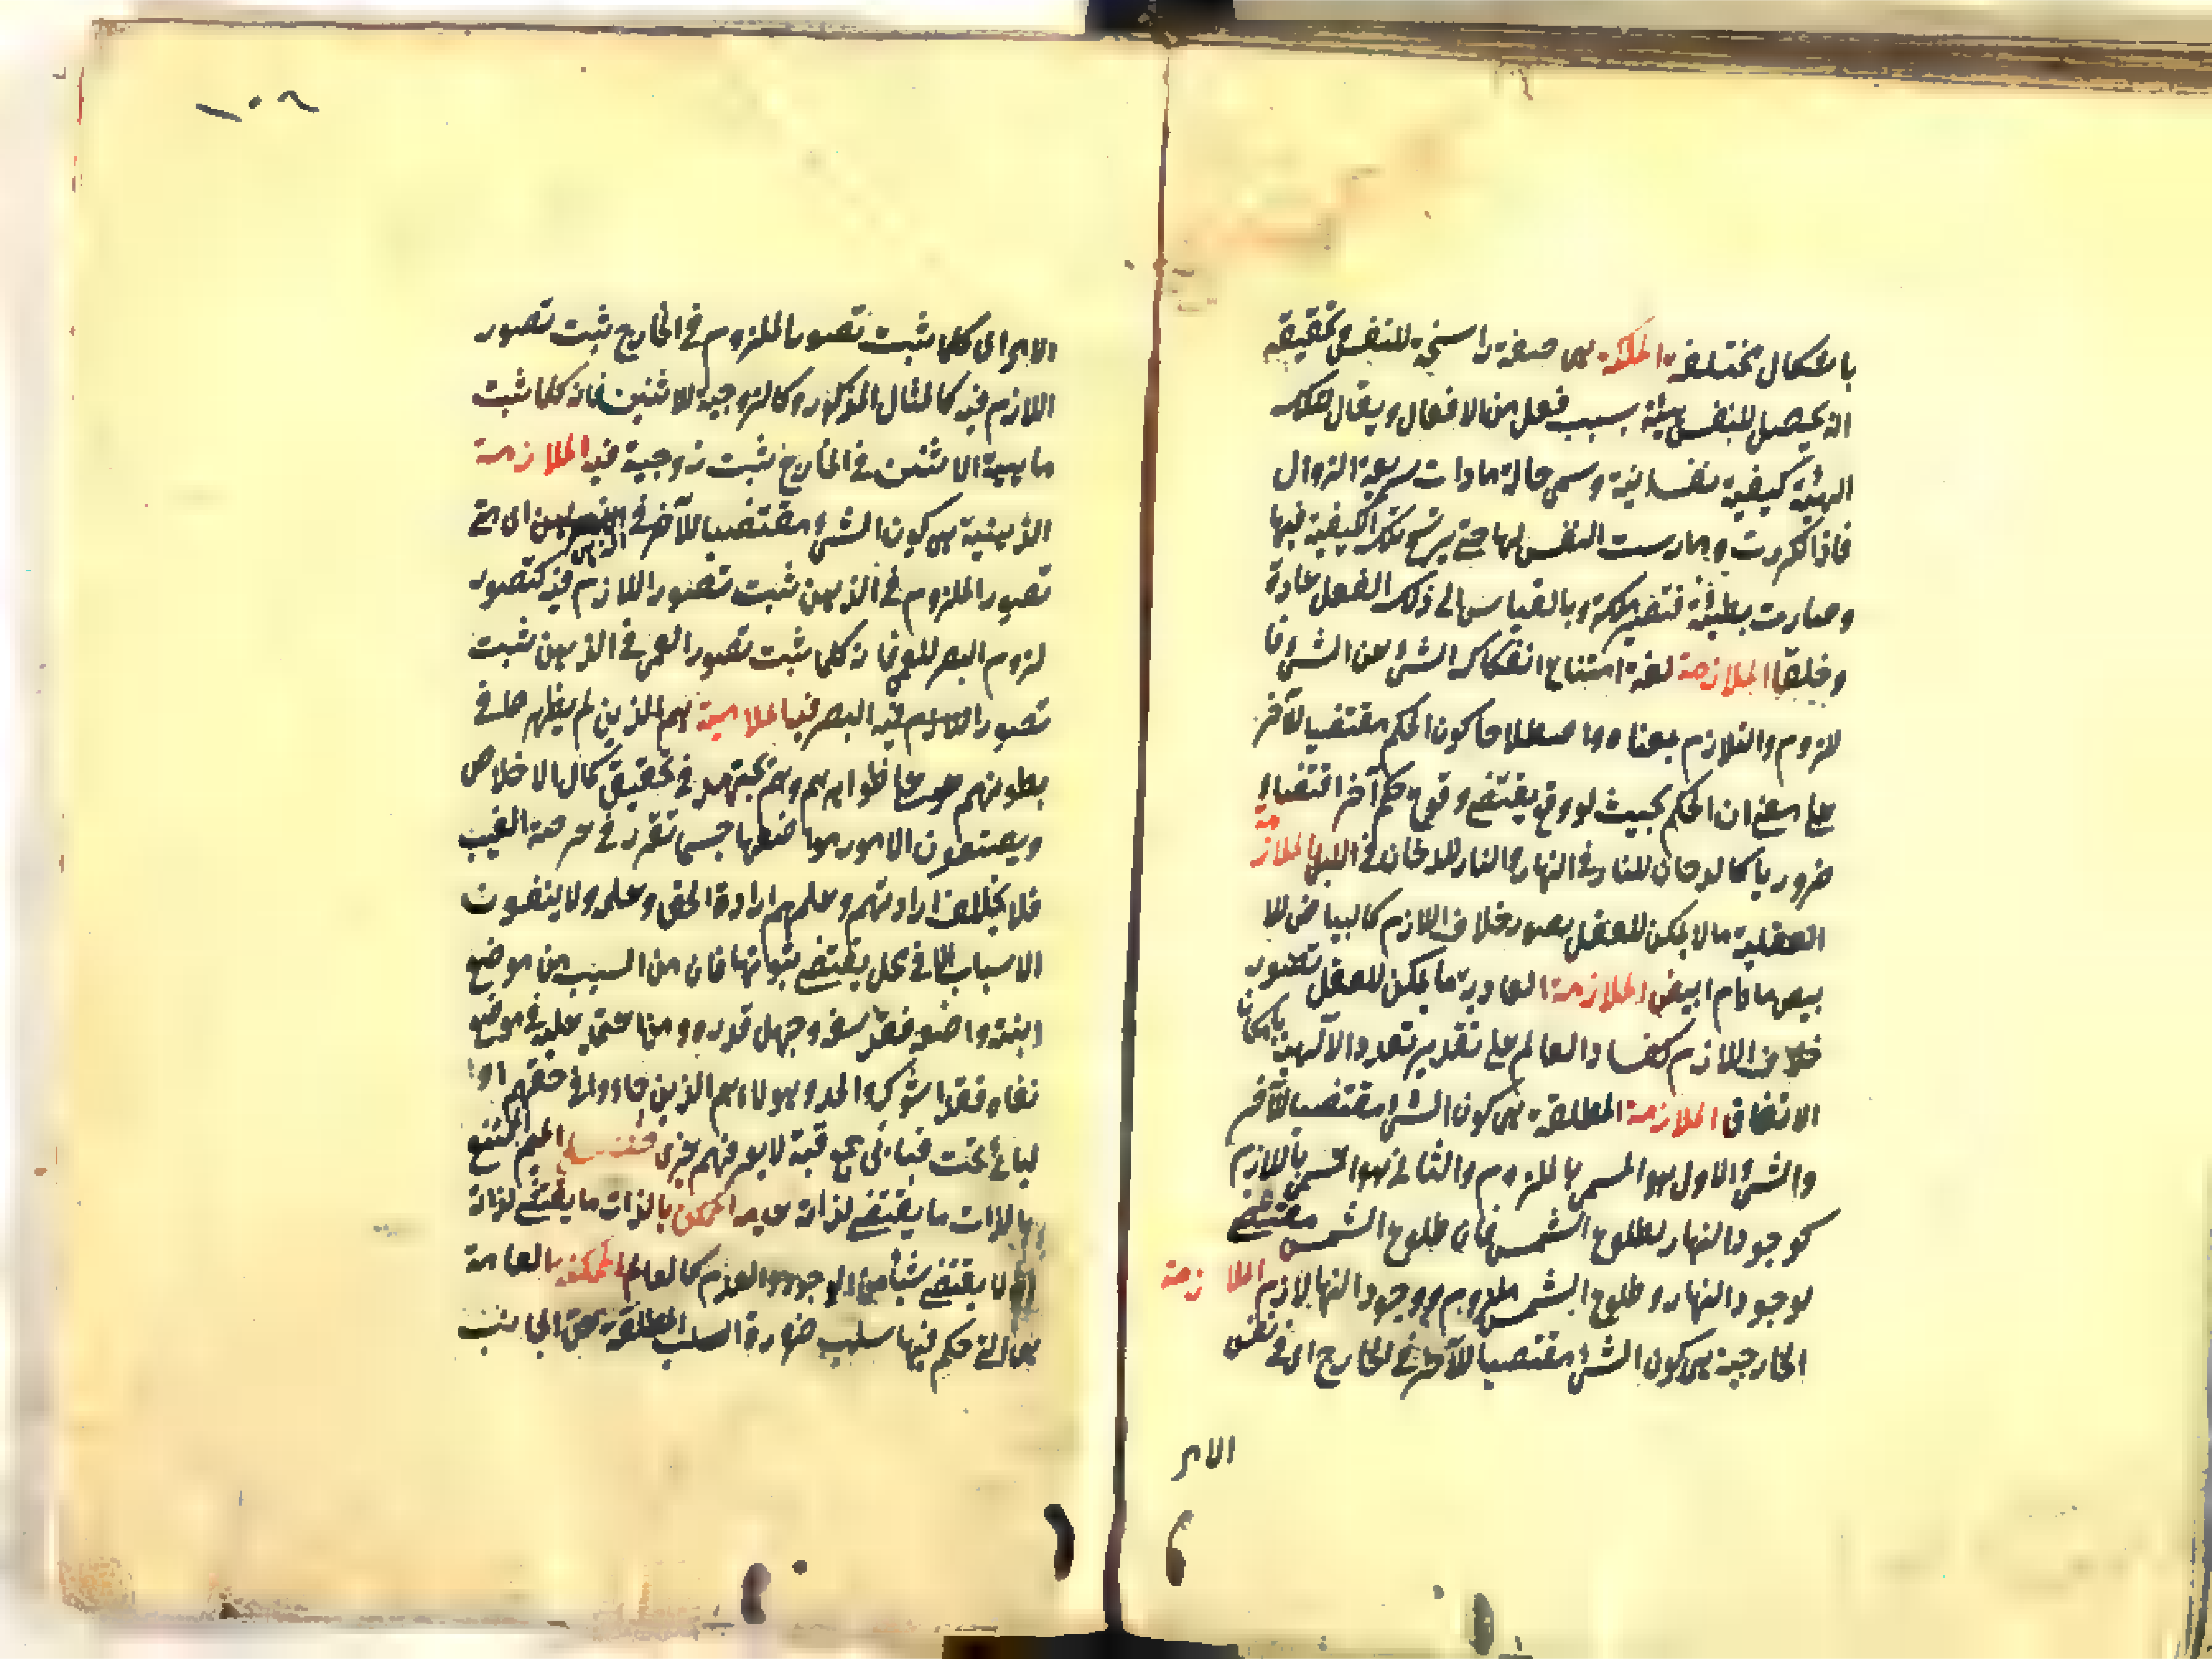 باشكال مختلفة الملكة هى صفة راسخة للنفس وتحقيقه
انه يحصل للنفس هيئة بسبب فعل من الافعال ويقال لتلك
الهيئة كيفية نفسانية وسمى حالة مادامت سريعة الزوال
فاذا تكررت ومارست النفس لها حتى يرسخ تلك الكيفية فيها
وصارت بطيئة فتصير ملكة وبالقياس الى ذلك الفعل عادة
وخلقا الملازمة لغة امتناع انفكاك الشئ عن الشئ فا
لزوم والتلازم بمعناه واصطلاحا كون الحكم مقتضيا للآخر
على معنى ان الحكم بحيث لو وقع يقتضى وقوع حكم آخر اقتضاء
ضروريا كالدخان للنار فى النهار والنار للدخان فى الليل الملازمة
العقلية مالا يمكن للعقل تصور خلاف اللازم كالبياض للا
بيض مادام ابيض الملازمة العادية ما يمكن للعقل تصور
خلاف اللازم كفساد العالم على تقدير تعدد الآلهة بامكان
الاتفاق الملازمة المطلقة هى كون الشئ مقتضيا للآخر
والشئ الاول هو المسمى بالملزوم والثانى هو المسمى باللازم
كوجود النهار لطلوع الشمس فان طلوع الشمس مقتضى
لوجود النهار وطلوع الشمس ملزوم ووجود النهار لازم الملازمة
الخارجية هى كون الشئ مقتضيا للآخر فى الخارج اى فى نفس
الامر
١٠٩
الامر اى كلما ثبت تصور الملزوم فى الخارج ثبت تصور
اللازم فيه كالمثال المذكور وكالزوجية للاثنين فانه كلما ثبت
ماهية الاثنين فى الخارج ثبت زوجية فيه الملازمة
الذهنية هى كون الشئ مقتضيا للآخر فى الذهن اى متى
تصور الملزوم فى الذهن ثبت تصور اللازم فيه كتصور
لزوم البصر للعمى فانه كلما ثبت تصور العمى فى الذهن ثبت
تصور البصر فيه الملامية هم الذين لم يظهر ما فى
بطونهم على ظواهرهم وهم يجتهدون فى تحقيق كمال الاخلاص
ويضعون الامور مواضعها حسبما تقرر فى عرصة الغيب
فلا يخالف ارادتهم وعلمهم ارادة الحق وعلمه ولا ينفون
الاسباب الا فى محل يقتضى ثبوتها فان من السبب من موضع
اثبته واضعه فقد سفه وجهل قدره ومن اعتمد عليه فى موضع
نفاه فقد اشرك والحد وهؤلاء هم الذين جاء فى حقهم اوليائى
تحت قبابى لا يعرفهم غيرى الممتنع
بالذات ما يقتضى لذاته عدمه الممكن بالذات ما يقتضى لذاته
ان لا يقتضى شيئا من الوجود والعدم كالعالم الممكنة العامة
هى التى حكم فيها بسلب ضرورة السلب المطلقة عن الجانب